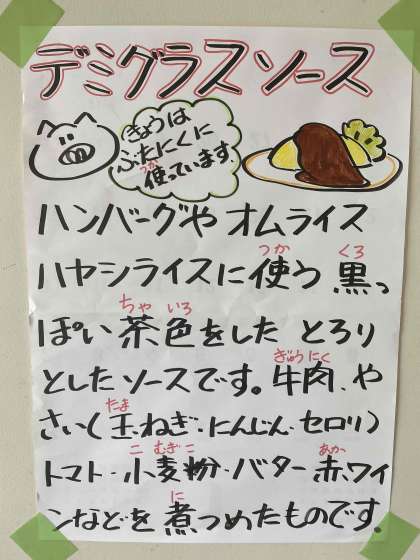 デミグラスソース
きょうは
ぶたにくに
つか
使っています。
ハンバーグや オムライス
つか くろ
ハヤシライスに使う 黒っ
ちゃ いろ
ぽい 茶色をした とろり
ぎゅうにく
としたソースです。牛肉、や
たま
さい(玉ねぎ・にんじん・セロリ)
こ むぎ こ あか
トマト・小麦粉・バター 赤ワイ
に
ンなどを 煮つめたものです。